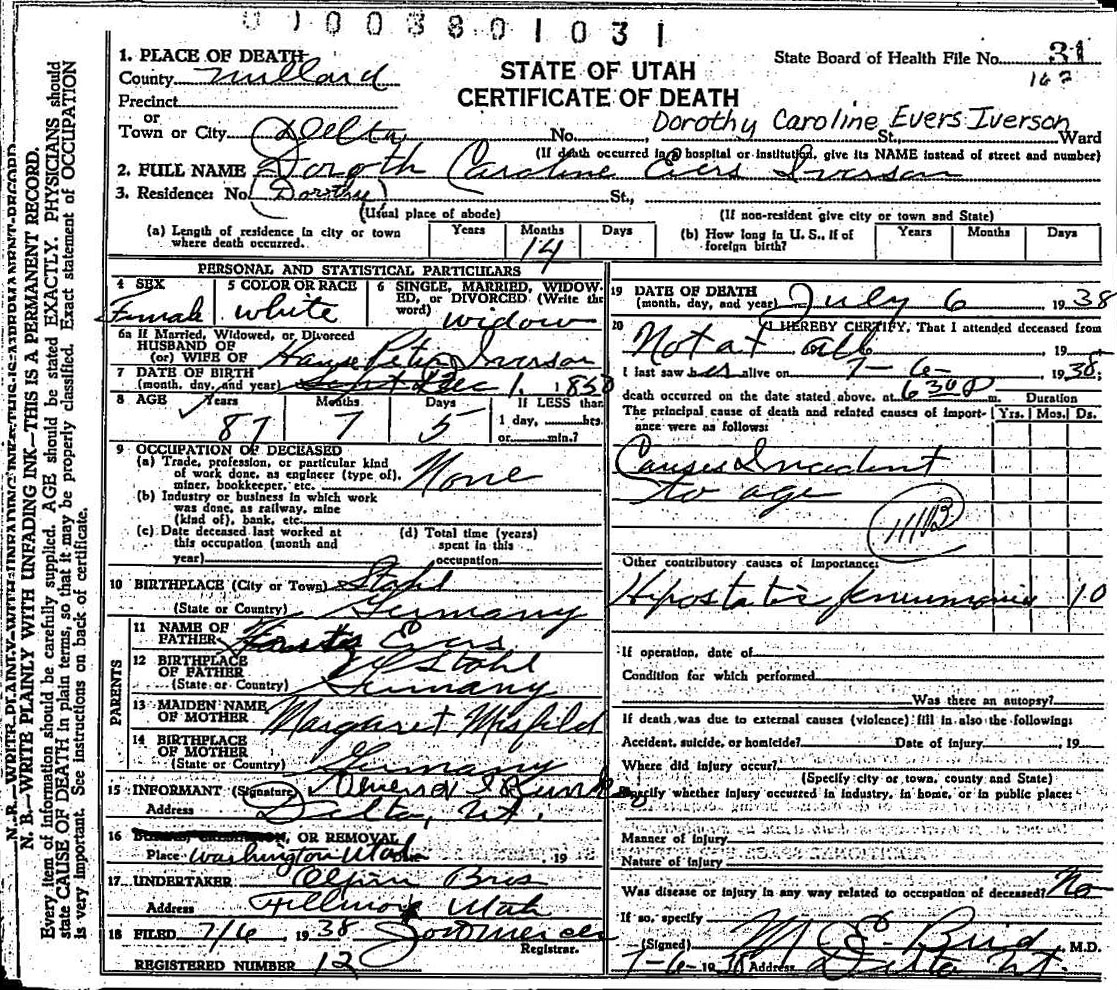 0 1 0 0 3 8 0 1 0 3 1
1. PLACE OF DEATH
State Board of Health File No. 31
County Millard
STATE OF UTAH
167
CERTIFICATE OF DEATH
Precinct
or
Town or City Delta No. Dorothy Caroline Evers Iverson St., Ward
(If death occurred in a hospital or institution, give its NAME instead of street and number)
2. FULL NAME Doroth Caroline Evers Iverson
3. Residence: No. (Dorothy) St.,
(Usual place of abode) (If non-resident give city or town and State)
(a) Length of residence in city or town where death occurred. Years Months 14 Days
(b) How long in U. S., if of foreign birth? Years Months Days
PERSONAL AND STATISTICAL PARTICULARS
4 SEX Female
5 COLOR OR RACE white
6 SINGLE, MARRIED, WIDOWED, or DIVORCED (Write the word) widow
6a If Married, Widowed, or Divorced
HUSBAND OF
(or) WIFE OF Hans Peter Iverson
7 DATE OF BIRTH
(month, day, and year) Dec 1, 1850
8 AGE Years 87 Months 7 Days 5 If LESS than
1 day, hrs.
or min.?
9 OCCUPATION OF DECEASED
(a) Trade, profession, or particular kind
of work done, as engineer (type of),
miner, bookkeeper, etc. None
(b) Industry or business in which work
was done, as railway, mine
(kind of), bank, etc.
(c) Date deceased last worked at
this occupation (month and
year)
(d) Total time (years)
spent in this
occupation
10 BIRTHPLACE (City or Town) Stohl
(State or Country) Germany
PARENTS
11 NAME OF
FATHER Evers
12 BIRTHPLACE
OF FATHER Stohl
(State or Country) Germany
13 MAIDEN NAME
OF MOTHER Margaret Misfild
14 BIRTHPLACE
OF MOTHER
(State or Country) Germany
15 INFORMANT (Signature)
Address Delta, Ut.
16 OR REMOVAL
Place Washington Utah 19
17 UNDERTAKER Olpin Bros
Address Fillmore Utah
18 FILED 7/6 1938
Registrar.
REGISTERED NUMBER 12
19 DATE OF DEATH
(month, day, and year) July 6 1938
20 I HEREBY CERTIFY, That I attended deceased from
Not at all 19
I last saw her alive on 7-6- 1938;
death occurred on the date stated above, at 630 P m.
The principal cause of death and related causes of importance were as follows:
Duration
Yrs. Mos. Ds.
Causes Incident
to age
Other contributory causes of importance:
Hipostatic pneumonia 10
If operation, date of
Condition for which performed
Was there an autopsy?
If death was due to external causes (violence) fill in also the following:
Accident, suicide, or homicide? Date of injury 19
Where did injury occur?
(Specify city or town, county and State)
Specify whether injury occurred in industry, in home, or in public place:
Manner of injury
Nature of injury
Was disease or injury in any way related to occupation of deceased? No
If so, specify
(Signed) M E Bird, M.D.
7-6-1938 Address Delta Ut.
N. B.—WRITE PLAINLY WITH UNFADING INK—THIS IS A PERMANENT RECORD.
Every item of information should be carefully supplied. AGE should be stated EXACTLY. PHYSICIANS should
state CAUSE OF DEATH in plain terms, so that it may be properly classified. Exact statement of OCCUPATION
is very important. See instructions on back of certificate.